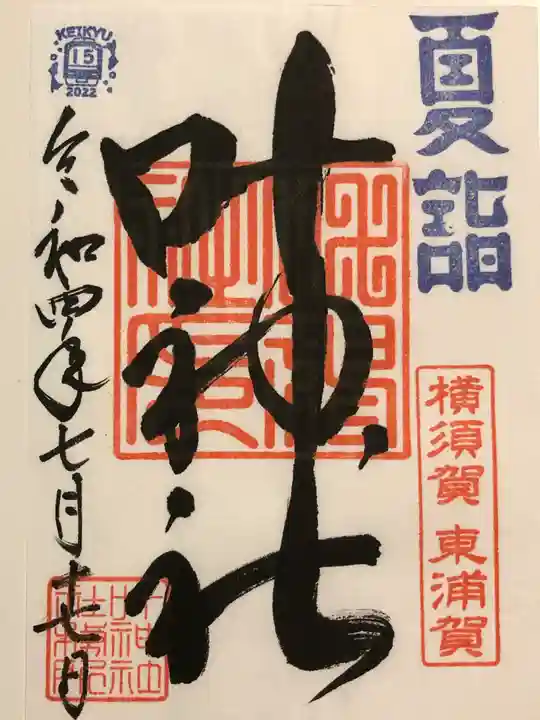 夏詣
横須賀 東浦賀
叶神社
KEIKYU
15
2022
令和四年七月十七日